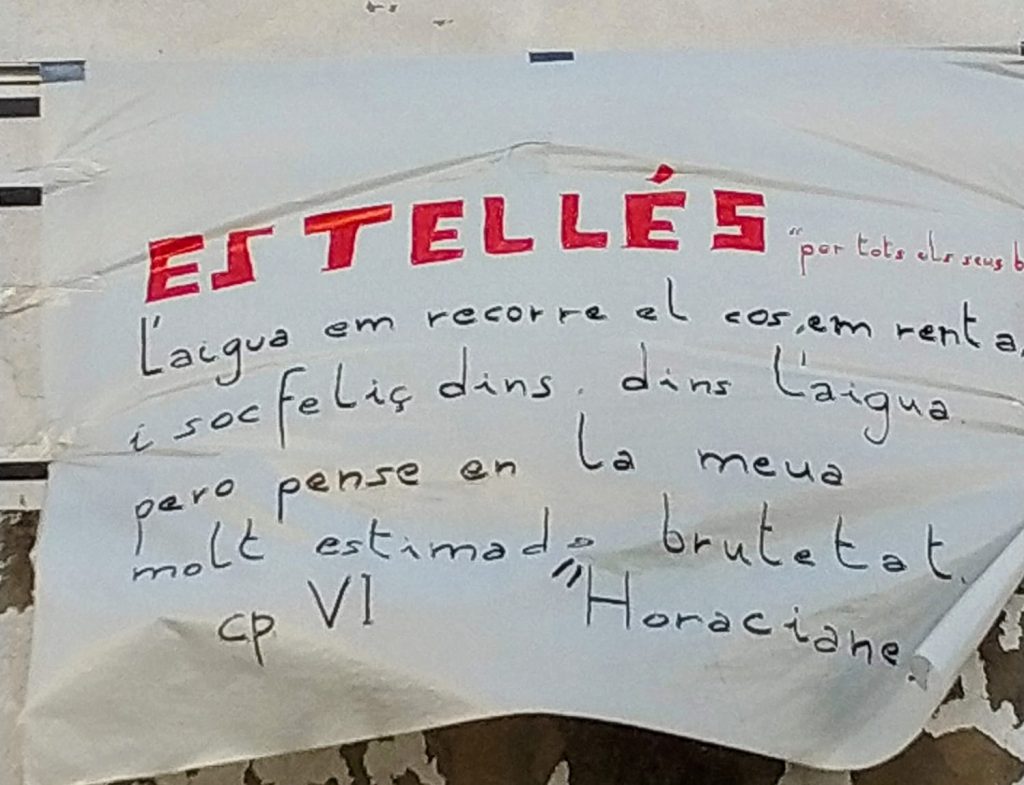 ESTELLÉS "per tots els seus b
L'aigua em recorre el cos, em renta,
i soc feliç dins, dins l'aigua
pero pense en la meua
molt estimada brutetat.
cp VI "Horaciane